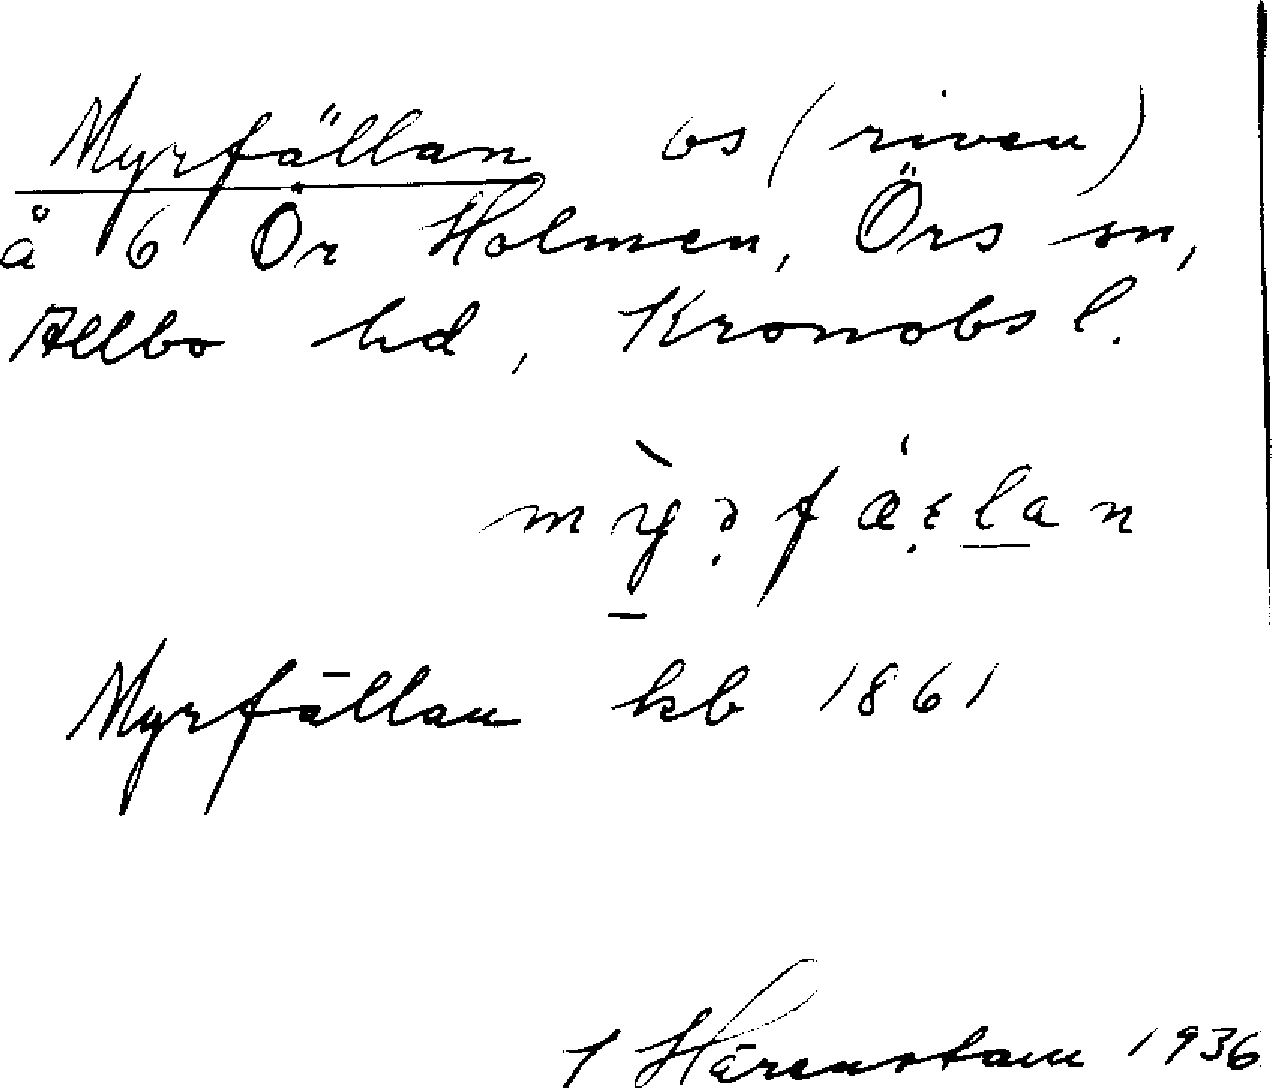 Myrfällan bs (riven)
å 6 Ör Holmen, Örs sn,
Allbo hd, Kronobs l.
Myrfällan kb 1861
Härenstam 1936